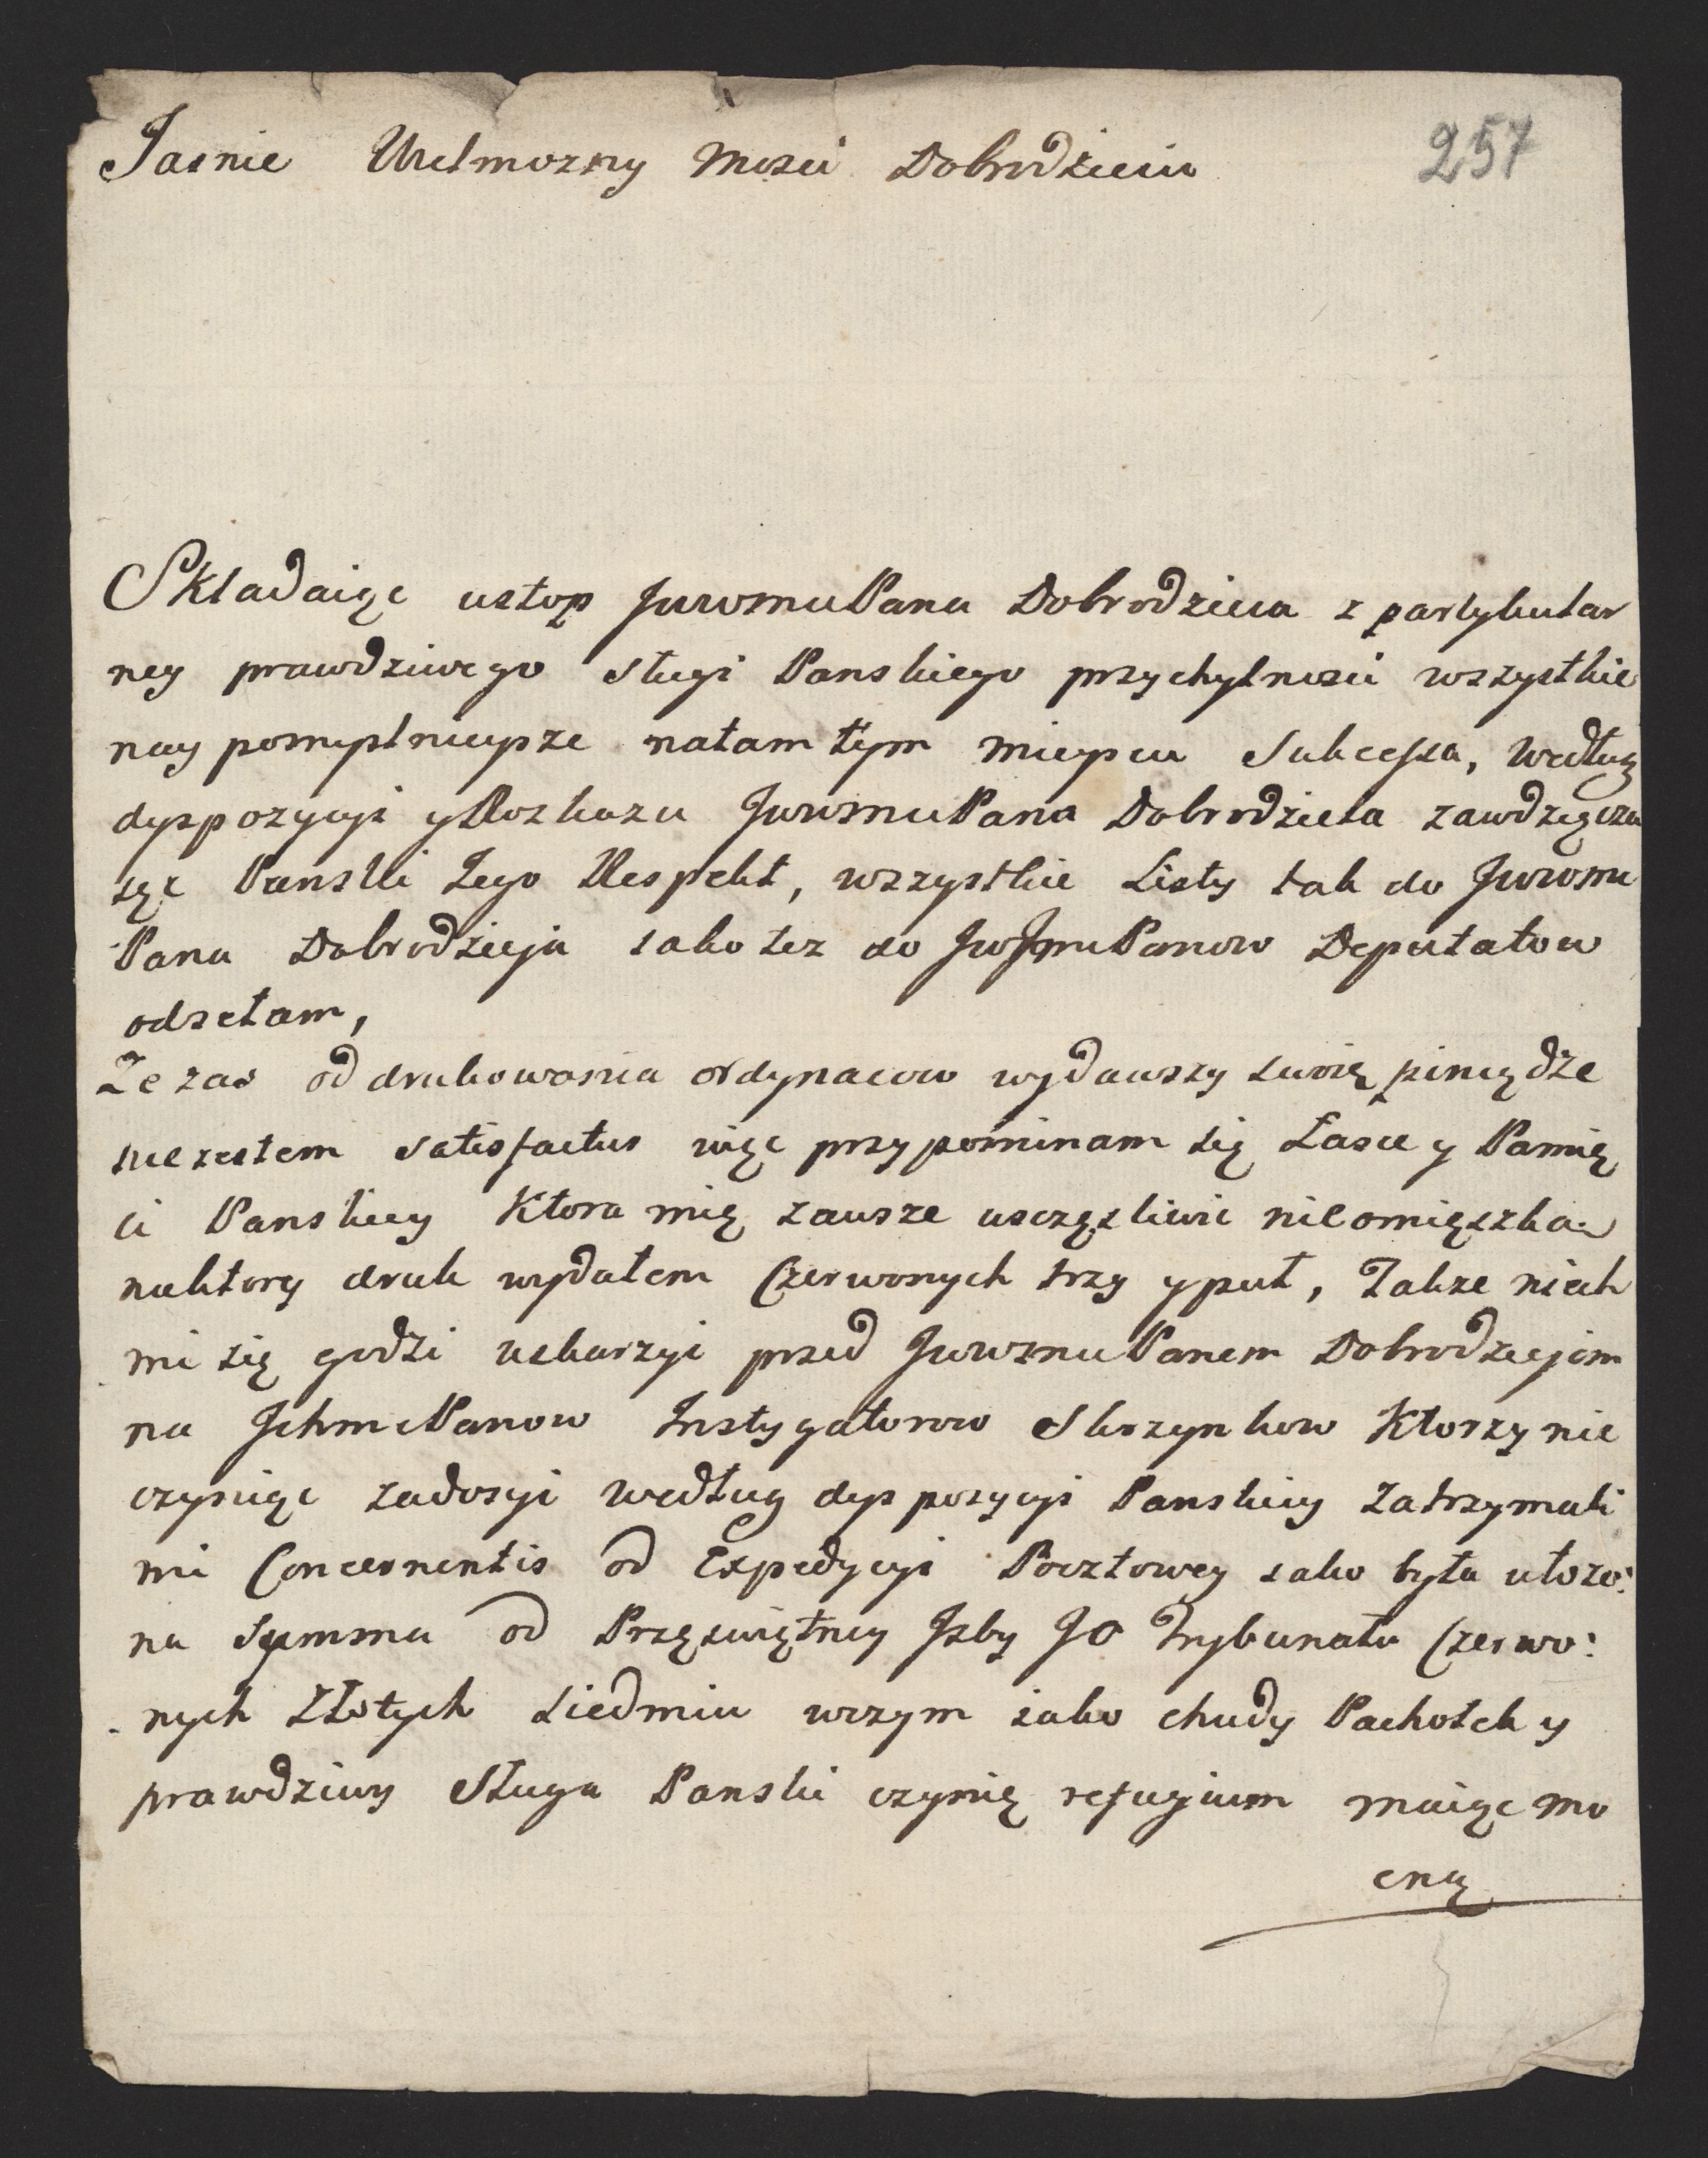 Jasnie Wielmozny Mosci Dobrodzieiu
257
Składaiąc ustop JwwmuPana Dobrodzieia z partykular
ney prawdziwego sługi Panskiego przychylnosci wszystkie
naypomyslnieysze natamtym mieyscu Sukcessa, według
dyspozycyi yRozkazu JwwmuPana Dobrodzieia zawdzięcza
iąc Panski Jego Respekt, wszystkie Listy tak do Jwwmu
Pana Dobrodzieja iako tez do PanowDeputatow
odsełam,
Ze zas od drukowania ordynacow wydawszy swoię pieniądze
nie iestem satisfactus więc przypominam się Łasce y Pamię
ci Panskiey Ktora mię zawsze usczęsliwic nieomięszka
naktory druk wydałem Czerwonych trzy ypuł, Takze niech
mi się godzi uskarzyc przed JwwmuPanem Dobrodziejem
na JchmcPanow Instygatorow Skrzynkow Ktorzy nie
czyniąc zadosyc według dyspozycyi Panskiey Zatrzymali
mi Concernentis od Expedycyi Pocztowey iako była ułozo:
na Summa od Przęswiętney Jzby JO Trybunału Czerwo:
nych Złotych siedmiu wczym iako chudy Pachołek y
prawdziwy Sługa Panski czynię refugium maiąc mo
cną